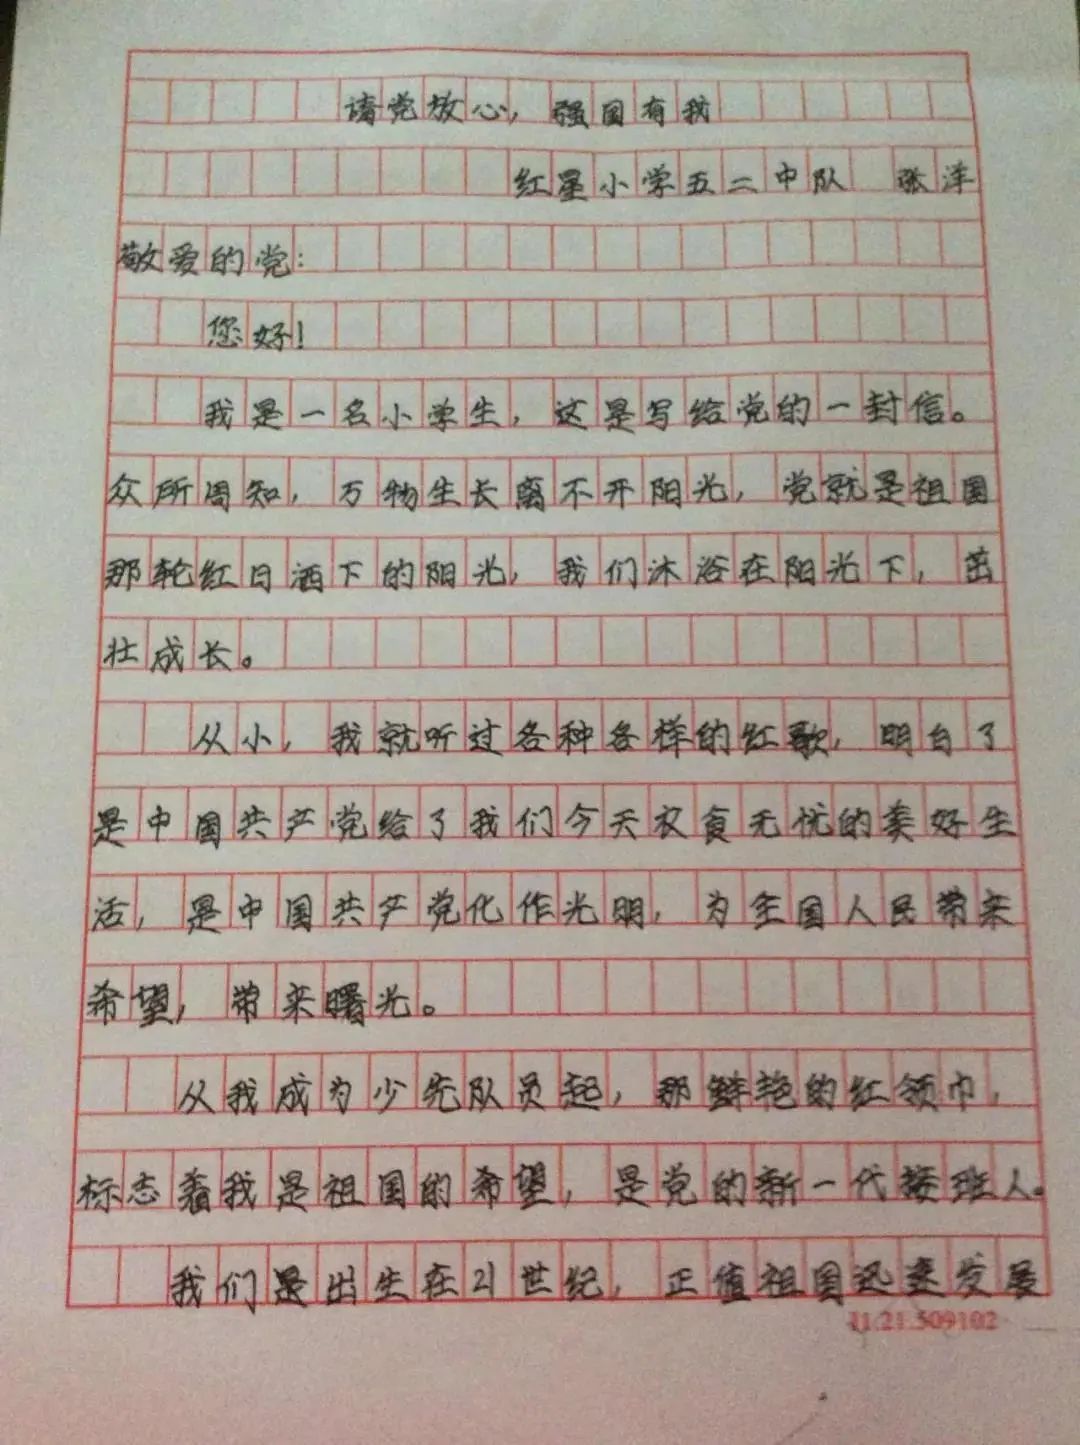 请党放心，强国有我
红星小学五二中队 张洋
敬爱的党：
您好！
我是一名小学生，这是写给党的一封信。
众所周知，万物生长离不开阳光，党就是祖国
那轮红日洒下的阳光，我们沐浴在阳光下，茁
壮成长。
从小，我就听过各种各样的红歌，明白了
是中国共产党给了我们今天衣食无忧的美好生
活，是中国共产党化作光明，为全国人民带来
希望，带来曙光。
从我成为少先队员起，那鲜艳的红领巾，
标志着我是祖国的希望，是党的新一代接班人。
我们是出生在21世纪，正值祖国迅速发展
11.21.509102